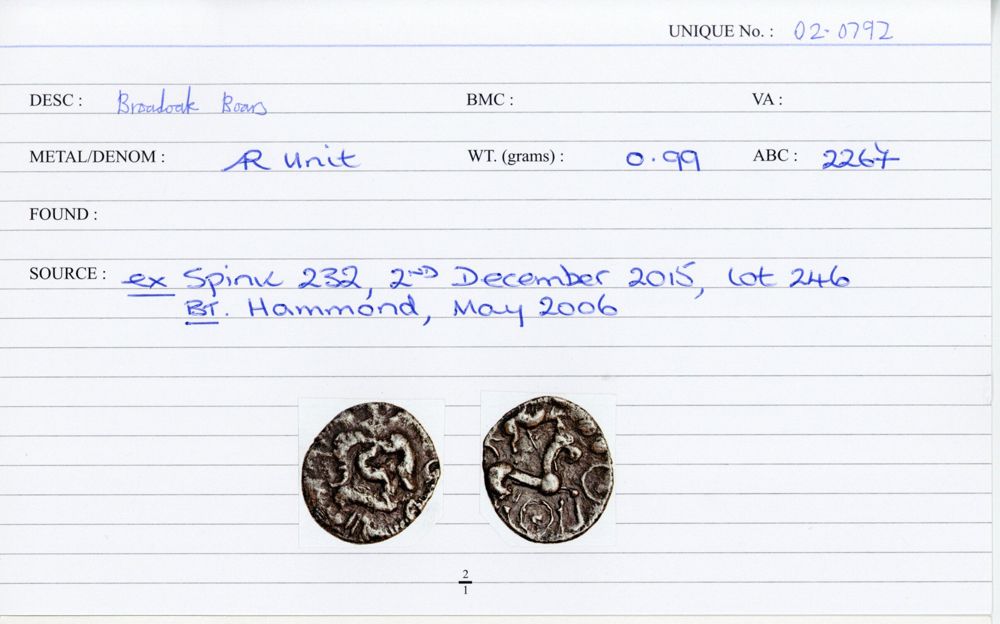 UNIQUE No. : 02-0792
DESC : Broadoak Boars BMC : VA :
METAL/DENOM : AR Unit WT. (grams) : 0.99 ABC : 2267
FOUND :
SOURCE : ex Spink 232, 2ND December 2015, lot 246
BT. Hammond, May 2006
2
1